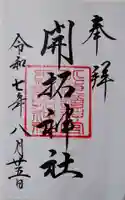 奉拝
開拓神社
令和七年八月廿五日